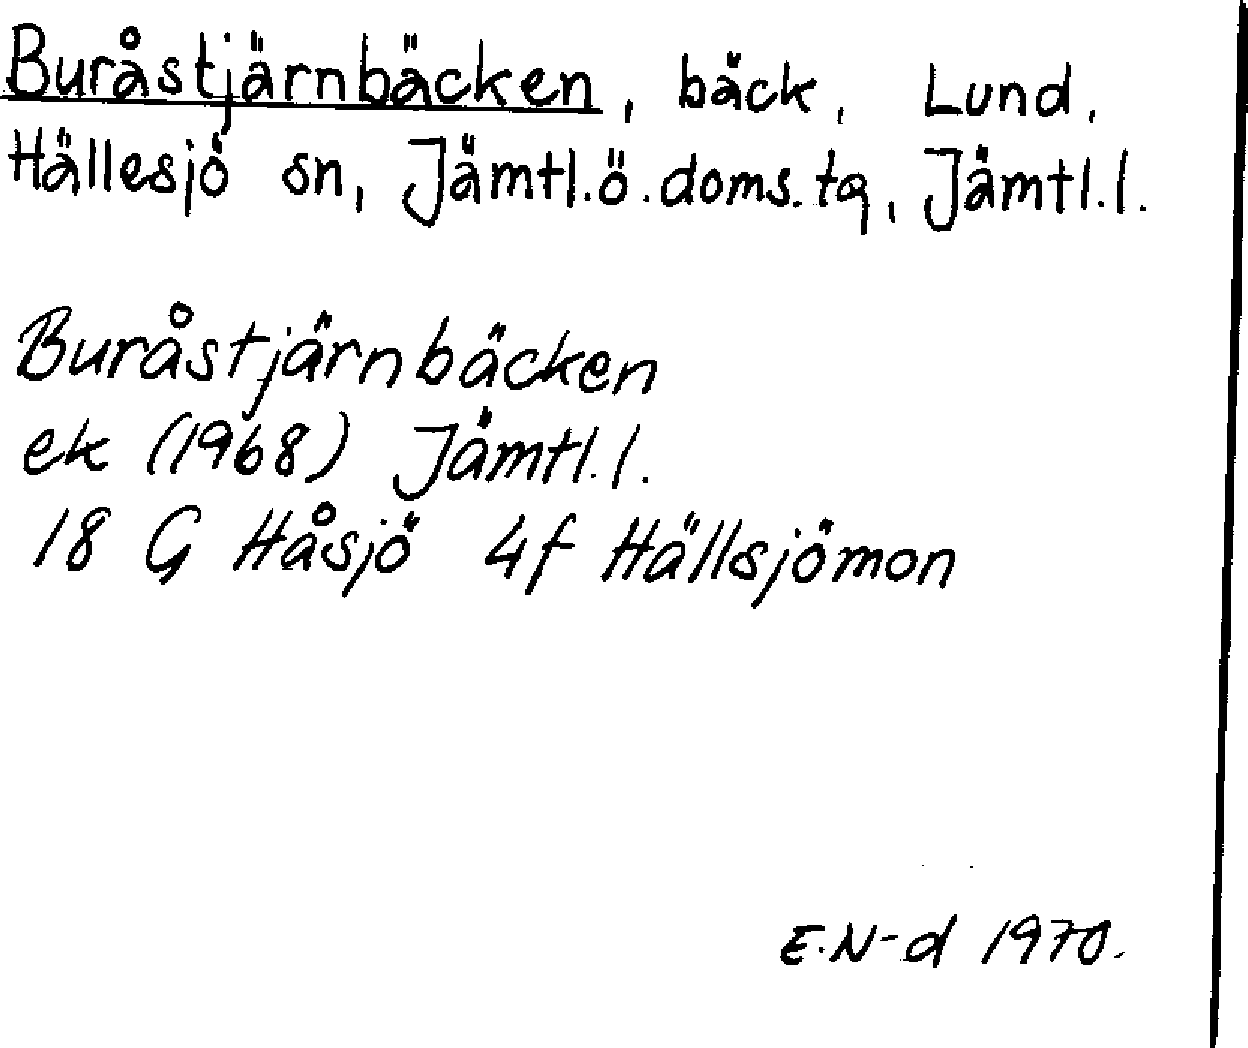 Buråstjärnbäcken, bäck, Lund,
Hällesjö sn, Jämtl.ö.doms.tq, Jämtl.l.
Buråstjärnbäcken
ek (1968) Jämtl.l.
18 G Håsjö 4f Hällsjömon
E.N-d 1970.